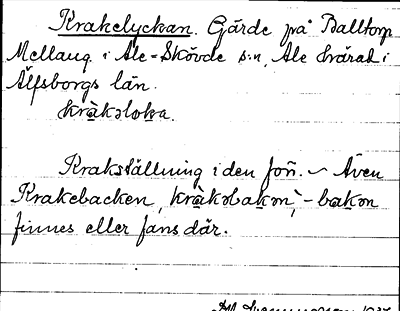 Krakelyckan. Gärde på Balltorp
Mellang. i Ale-Skövde s:n, Ale härad i
Älfsborgs län.
kràkəloka.
Krakställning i den förr. – Även
Krakebacken, kràkəbakən, - bakən
finnes eller fans där.